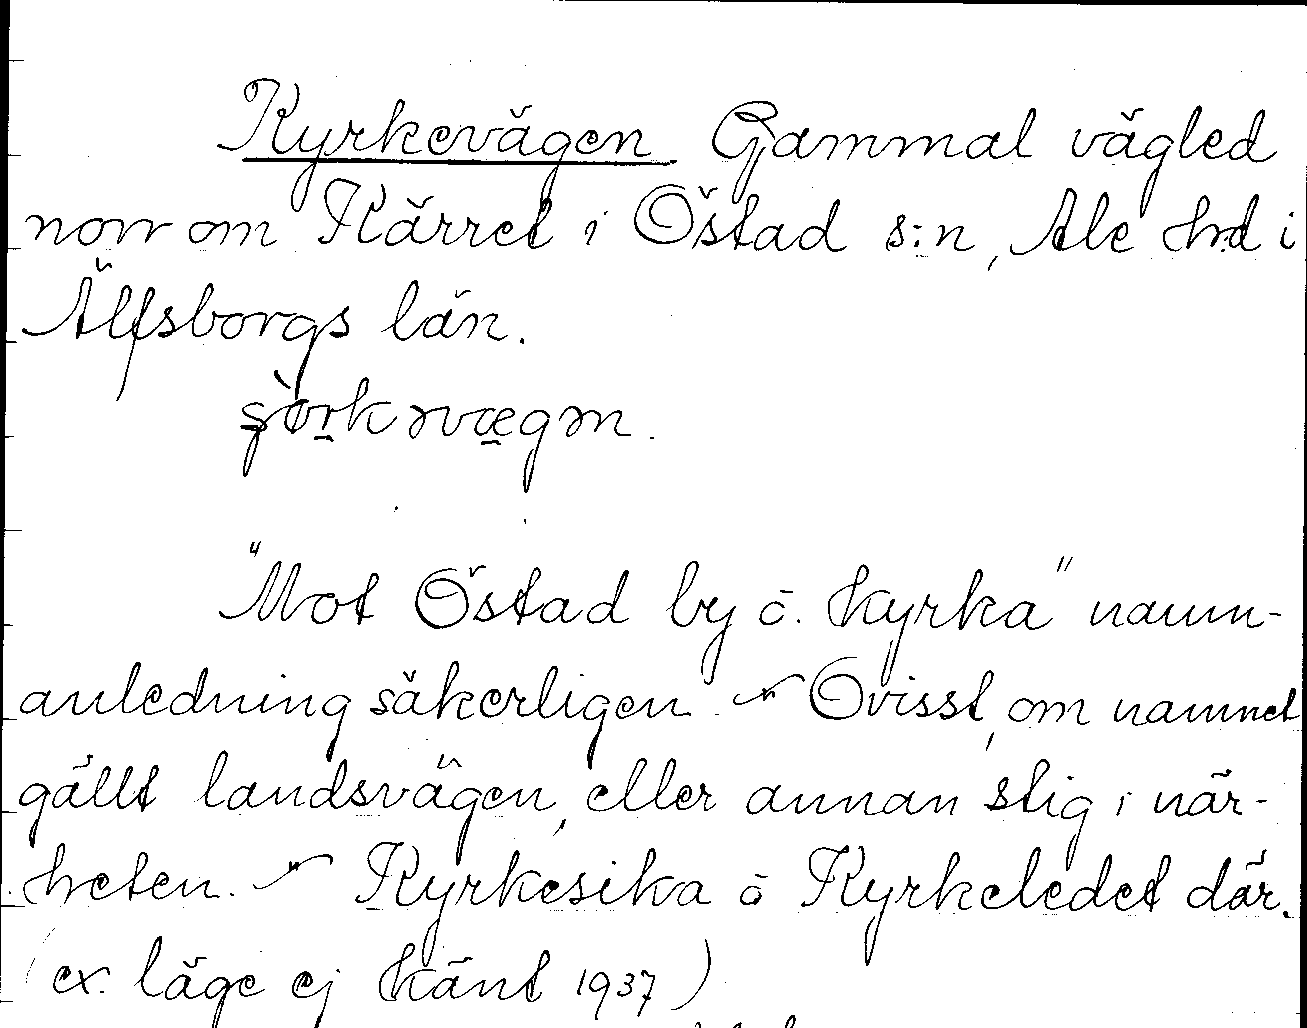 Kyrkevägen Gammal vägled
norr om Kärret i Östad s:n, Ale hd i
Älfsborgs län.
"Mot Östad by o. kyrka" namn-
anledning säkerligen. - Ovisst, om namnet
gällt landsvägen, eller annan stig i när-
heten. - Kyrkesika o Kyrkeledet där.
(ex. läge ej känt 1937)